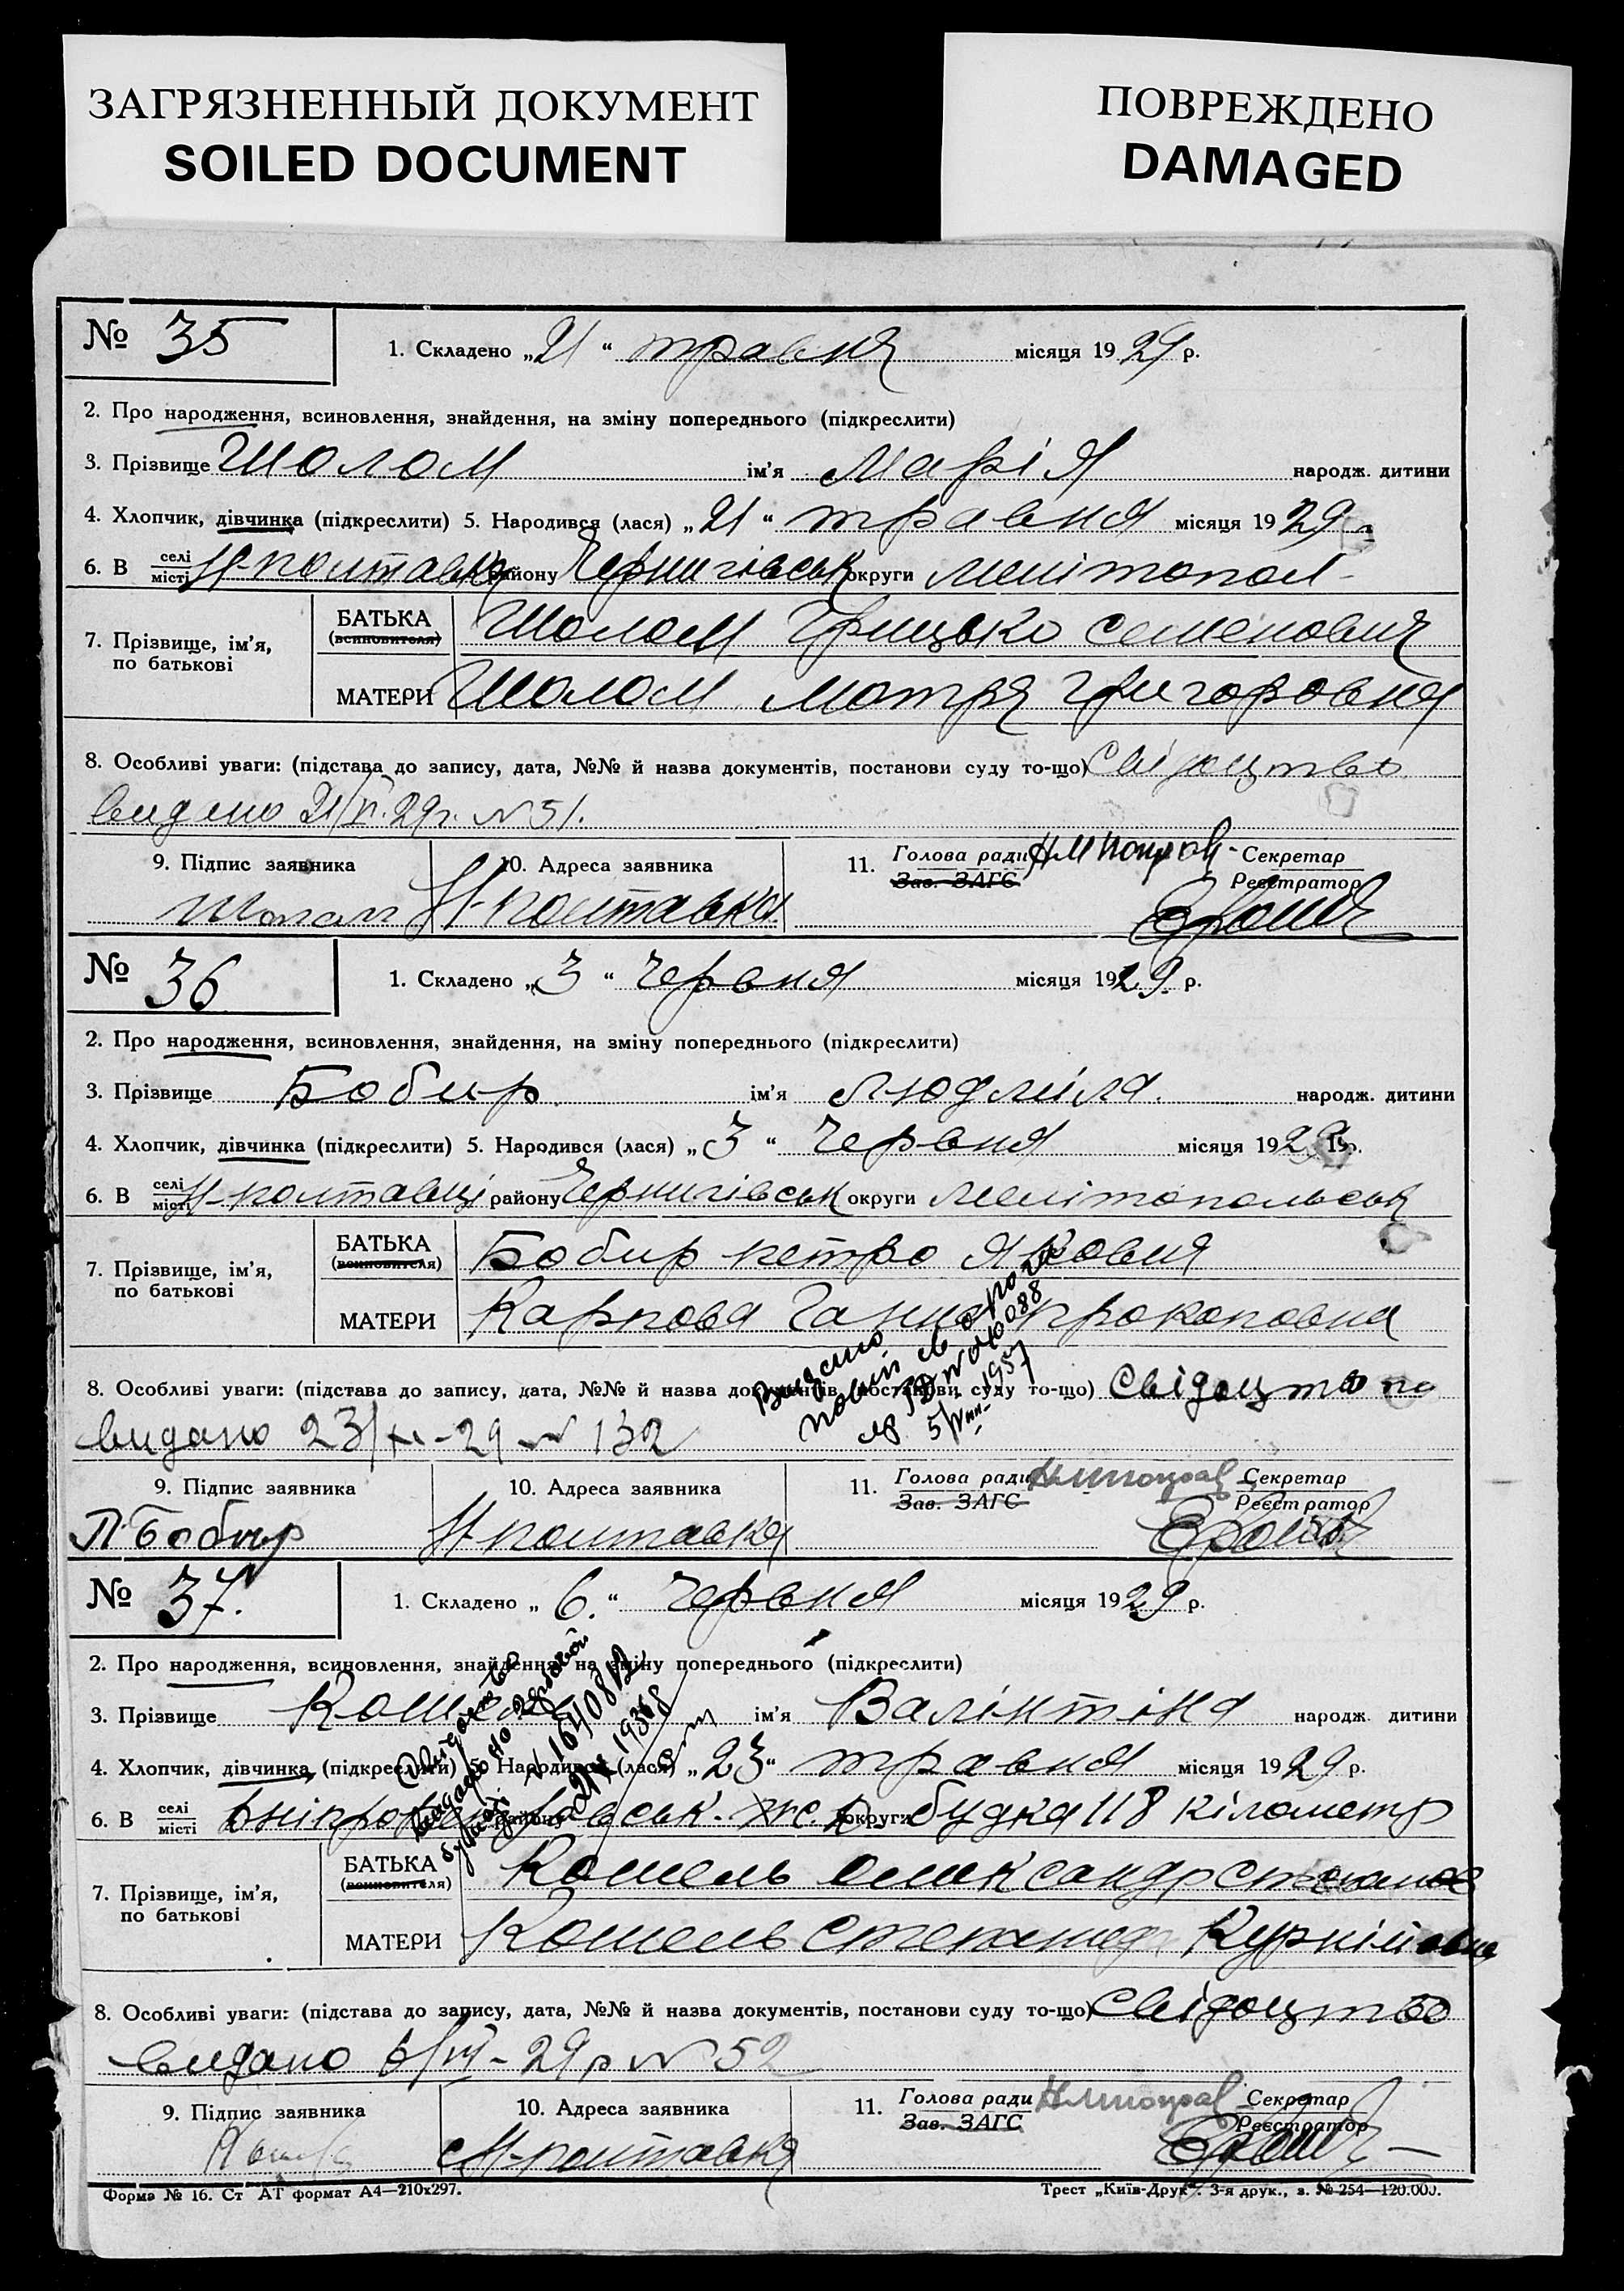 ЗАГРЯЗНЕННЫЙ ДОКУМЕНТ
SOILED DOCUMENT
ПОВРЕЖДЕНО
DAMAGED
№ 35 1. Складено „21“ травня місяця 1929 р.
2. Про народження, всиновлення, знайдення, на зміну попереднього (підкреслити)
3. Прізвище Шолом ім'я Марія народж. дитини
4. Хлопчик, дівчинка (підкреслити) 5. Народився (лася) „21“ травня місяця 1929
6. В селі місті Н-полтавка району Чернигівськ округи мелітопол-
7. Прізвище, ім'я, по батькові
БАТЬКА (всиновителя) Шолом Грицько семенович
МАТЕРИ Шолом Мотря григоровня
8. Особливі уваги: (підстава до запису, дата, №№ й назва документів, постанови суду то-що) Свідоцтво
видано 21/V. 29р. N 51.
9. Підпис заявника 10. Адреса заявника 11. Голова ради Зав. ЗАГС Секретар Реєстратор
Шолом Н-полтавка
№ 36 1. Складено „3“ червня місяця 1929 р.
2. Про народження, всиновлення, знайдення, на зміну попереднього (підкреслити)
3. Прізвище Бобир ім'я Людміла. народж. дитини
4. Хлопчик, дівчинка (підкреслити) 5. Народився (лася) „3“ червня місяця 1929 р.
6. В селі місті Н-полтавці району Чернигівськ округи мелітопольськ
7. Прізвище, ім'я, по батькові
БАТЬКА (всиновителя) Бобир петро Якович
МАТЕРИ Карпова Ганна прокоповна
Видано
5/VIII-1957
8. Особливі уваги: (підстава до запису, дата, №№ й назва документів, постанови суду то-що) Свідоцтво
видано 23/XI-29 N 132
9. Підпис заявника 10. Адреса заявника 11. Голова ради Зав. ЗАГС Секретар Реєстратор
П. Бобир Н-полтавка
№ 37. 1. Складено „6.“ червня місяця 1929 р.
2. Про народження, всиновлення, знайдення, на зміну попереднього (підкреслити)
3. Прізвище Кошель ім'я Валінтіна народж. дитини
4. Хлопчик, дівчинка (підкреслити) 5. Народився (лася) „23“ травня місяця 1929 р.
6. В селі місті району округи будка 118 кілометр
7. Прізвище, ім'я, по батькові
БАТЬКА (всиновителя) Кошель олександр
МАТЕРИ Кошель Степанида
8. Особливі уваги: (підстава до запису, дата, №№ й назва документів, постанови суду то-що) Свідоцтво
видано 6/VI-29р N 52
9. Підпис заявника 10. Адреса заявника 11. Голова ради Зав. ЗАГС Секретар Реєстратор
Н-полтавка
Форма № 16. Ст АТ формат А4—210х297. Трест „Київ-Друк“. 3-я друк., з. № 254—120.000.